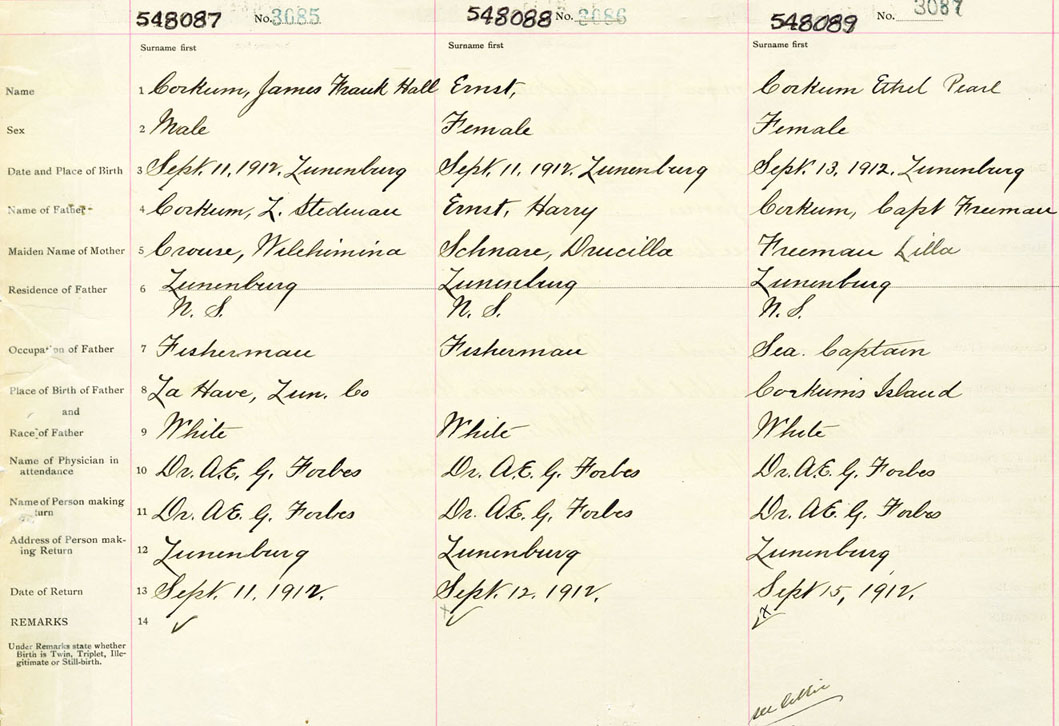 548087 No. 3085 548088 No. 3086 548089 No. 3087
Surname first Surname first Surname first
Name 1 Corkum, James Frank Hall Ernst, Corkum Ethel Pearl
Sex 2 Male Female Female
Date and Place of Birth 3 Sept. 11, 1912. Lunenburg Sept. 11, 1912. Lunenburg Sept. 13, 1912. Lunenburg
Name of Father 4 Corkum, L. Stedman Ernst, Harry Corkum, Capt Freeman
Maiden Name of Mother 5 Crouse, Wilehimina Schnare, Drucilla Freeman Lilla
Residence of Father 6 Lunenburg Lunenburg Lunenburg
N. S. N. S. N. S.
Occupation of Father 7 Fisherman Fisherman Sea. Captain
Place of Birth of Father 8 La Have, Lun. Co Corkum's Island
and
Race of Father 9 White White White
Name of Physician in
attendance 10 Dr. A.E. G. Forbes Dr. A.E. G. Forbes Dr. A.E. G. Forbes
Name of Person making
turn 11 Dr. A.E. G. Forbes Dr. A.E. G. Forbes Dr. A.E. G. Forbes
Address of Person mak-
ing Return 12 Lunenburg Lunenburg Lunenburg
Date of Return 13 Sept. 11, 1912. Sept. 12. 1912. Sept 15, 1912.
REMARKS 14
Under Remarks state whether
Birth is Twin, Triplet, Ille-
gitimate or Still-birth.
see